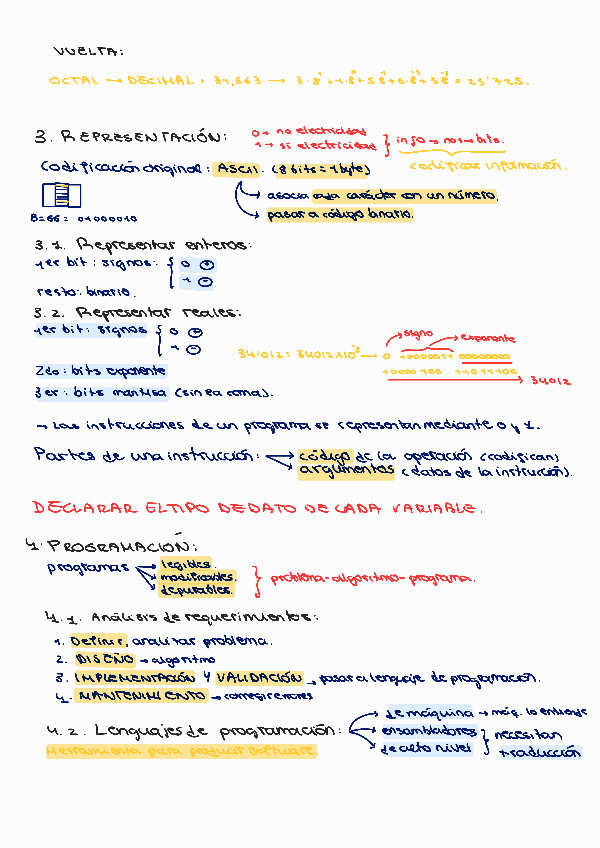 VUELTA:
OCTAL → DECIMAL: 31,563 → 3·8¹+1·8⁰+5·8⁻¹+6·8⁻²+3·8⁻³ = 25'725.
3. REPRESENTACIÓN:
0 → no electricidad
1 → sí electricidad
info → nos → bits.
codificar información.
Codificación original: ASCII. (8 bits = 1 byte)
→ asocia cada carácter con un número.
→ pasar a código binario.
B=66= 01000010
3.1. Representar enteros:
1er bit: signos: { 0 +
1 -
resto: binario.
3.2. Representar reales:
1er bit: signos { 0 +
1 -
34'012 = 34012x10⁻³ → 0 10000011 00000000
signo
exponente
10000100 11011100
34012
2do: bits exponente
3er: bits mantisa (sin la coma).
→ Las instrucciones de un programa se representan mediante 0 y 1.
Partes de una instrucción: → código de la operación (codifican)
→ argumentos (datos de la instrucción).
DECLARAR EL TIPO DE DATO DE CADA VARIABLE.
4. PROGRAMACIÓN:
programas → legibles.
modificables.
depurables.
problema-algoritmo-programa.
4.1. Análisis de requerimientos:
1. Definir, analizar problema.
2. DISEÑO → algoritmo
3. IMPLEMENTACIÓN Y VALIDACIÓN → pasar a lenguaje de programación.
4. MANTENIMIENTO → corregir errores
4.2. Lenguajes de programación:
→ de máquina → máq. lo entiende
→ ensambladores
→ de alto nivel
} necesitan
traducción
Herramienta para producir software.